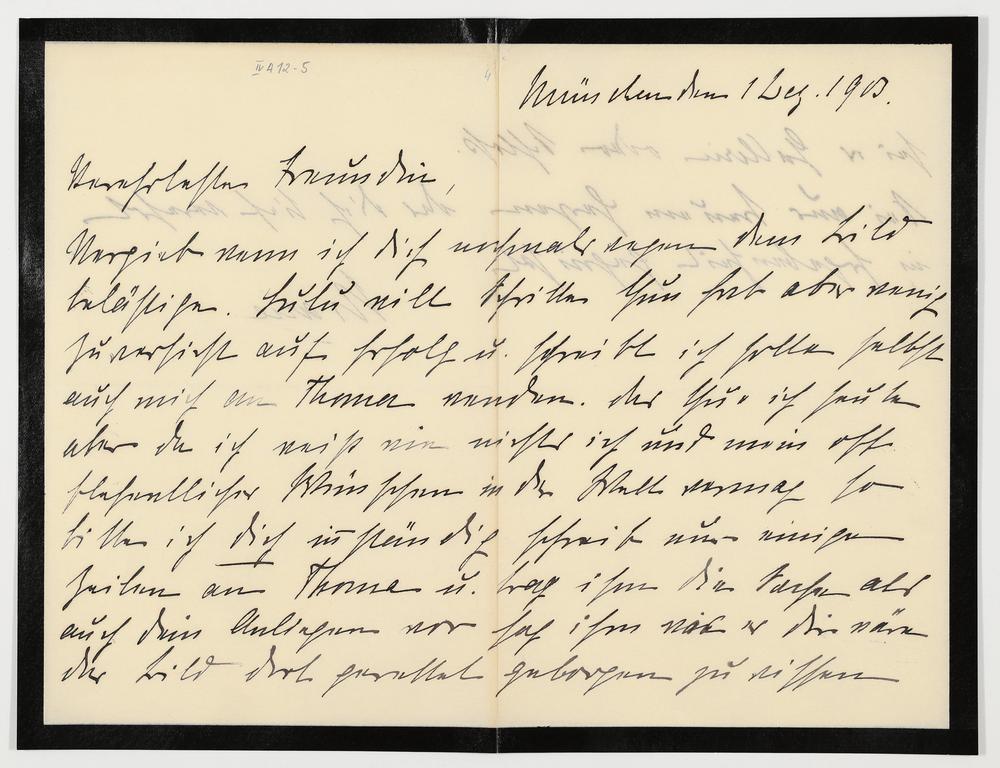 IV A 12-5
4
München den 1 Dez. 1903.
Verehrteste Freundin,
Vergieb wenn ich Dich nochmals wegen dem Bild
belästige. Lulu will Schritte thun hat aber wenig
Zuversicht auf Erfolg u. schreibt ich solle selbst
auch mich an Thoma wenden. das thue ich heute
aber da ich weiß wie nichts ich und mein oft
flehentliches Wünschen in der Welt vermag so
bitte ich dich inständig schreib nur einige
Zeilen an Thoma u. trag ihm die Sache als
auch dein Anliegen vor sag ihm was es dir wäre
das Bild dort gerettet geborgen zu wissen